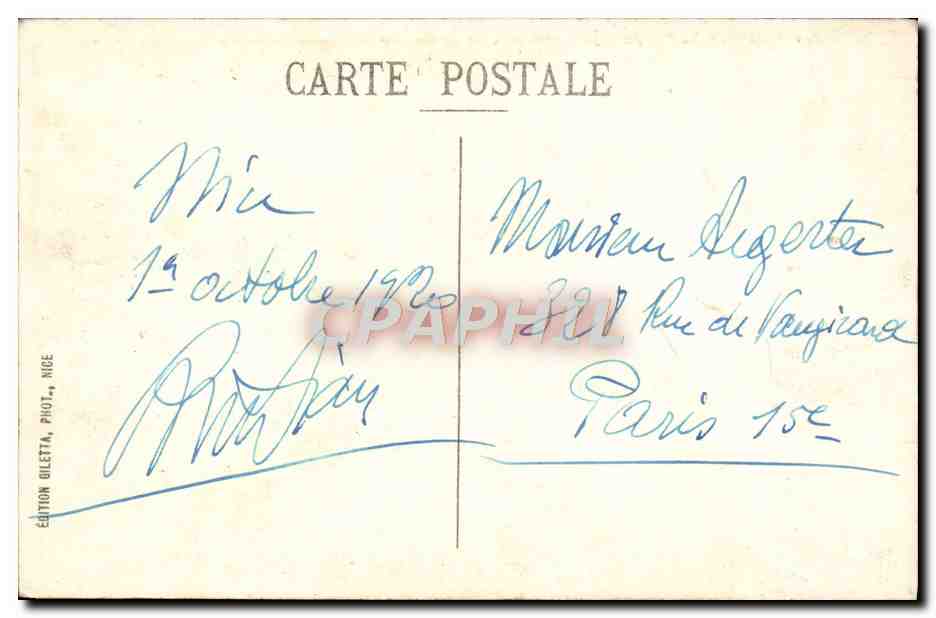 CARTE POSTALE
Nice
1er octobre 1920
Monsieur Argerter
328 Rue de Vaugirard
Paris 15e
ÉDITION GILETTA, PHOT., NICE
CPAPHIL